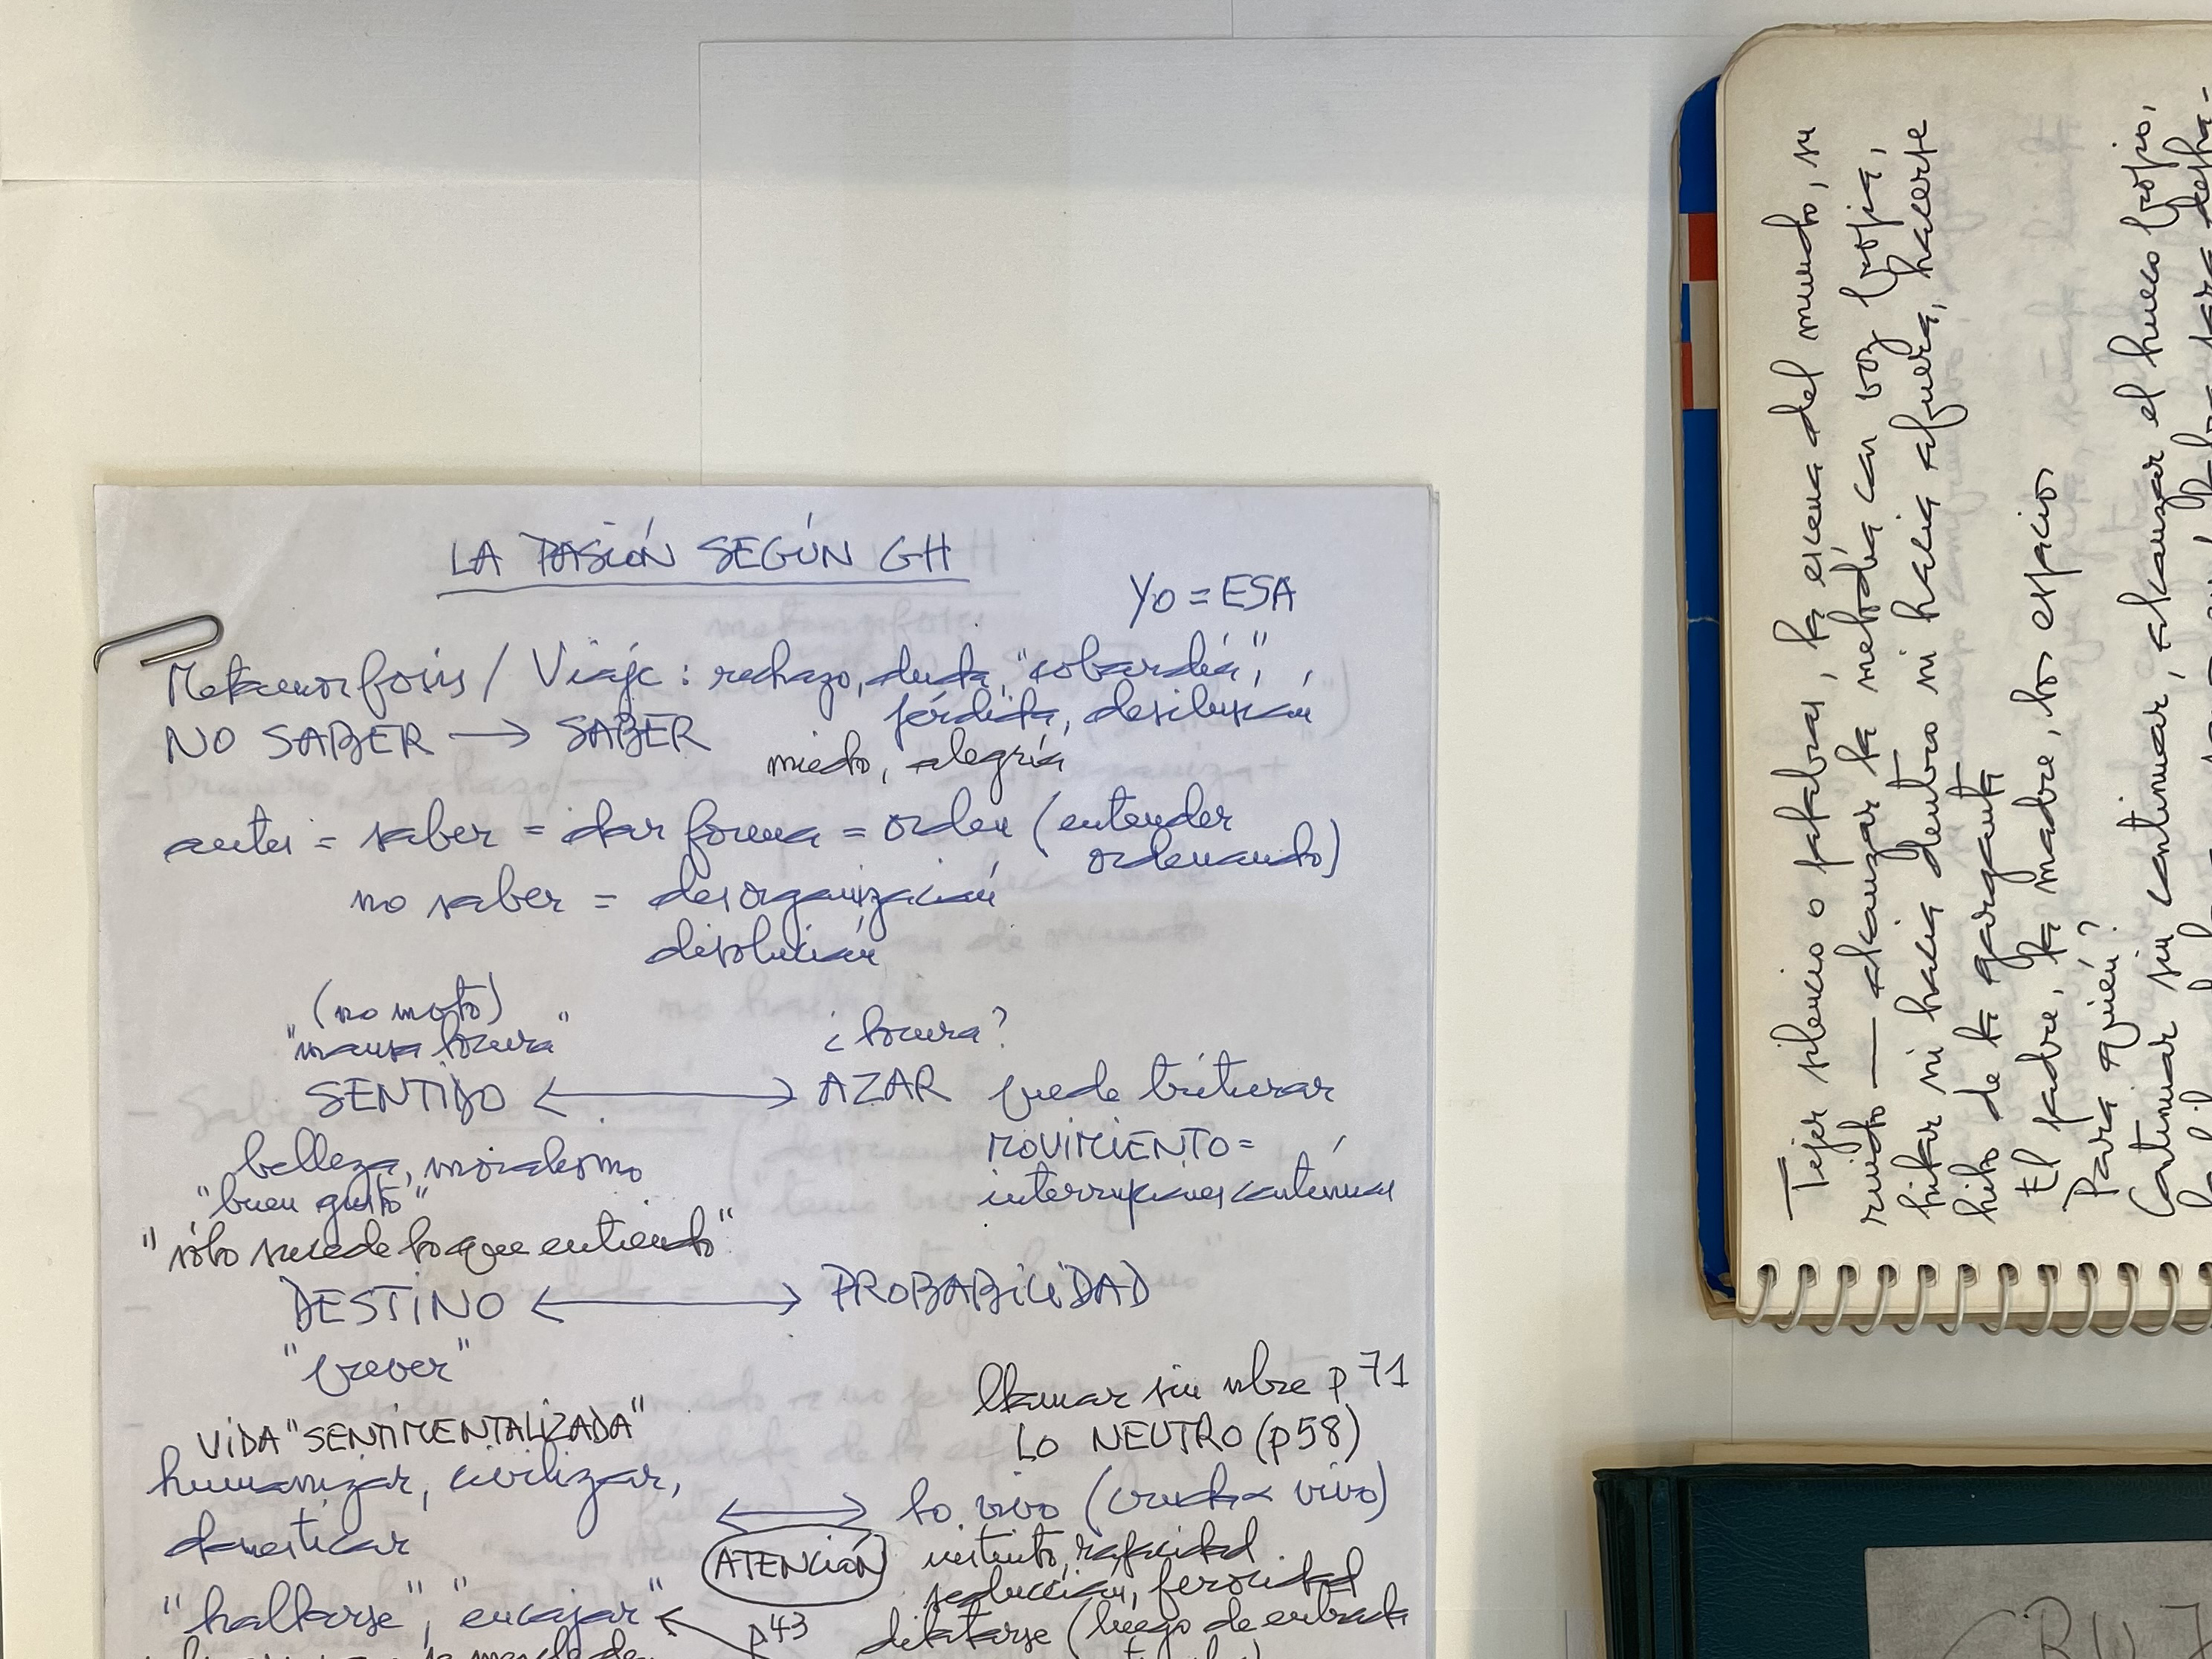 LA PASIÓN SEGÚN GH
YO = ESA
Metamorfosis / Viaje : rechazo, duda, "cobardía",
pérdida, desilusión
NO SABER → SABER
miedo, alegría
antes = saber = dar forma = orden (entender
ordenando)
no saber = desorganización
disolución
(no moto)
"mansa locura"
¿locura?
SENTIDO ↔ AZAR puede triturar
MOVIMIENTO =
interrupciones continuas
belleza, moralismo
"buen gusto"
"sólo sucede lo que entiendo"
DESTINO ↔ PROBABILIDAD
"prever"
llamar sin nbre p 71
LO NEUTRO (p58)
VIDA "SENTIMENTALIZADA"
humanizar, civilizar,
domesticar
↔ lo vivo (vivo)
ATENCIÓN
instinto, rapacidad
seducción, ferocidad
"hallarse", "encajar"
p43
dilatarse (luego de entrada
Tejer silencio o palabras, la escena del mundo, su
ruido — alcanzar la melodía con voz propia,
hilar ni hacia dentro ni hacia afuera, hacerse
hilo de la garganta
El padre, la madre, los espacios
Para quién?
Continuar sin continuar, alcanzar el hueco propio,
CRUZ